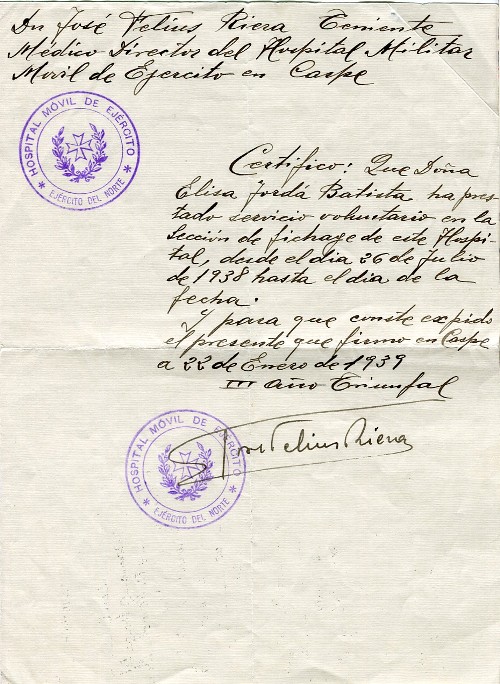 Dn José Felius Riera Teniente
Médico Director del Hospital Militar
Movil de Ejercito en Caspe
HOSPITAL MÓVIL DE EJÉRCITO
* EJÉRCITO DEL NORTE *
Certifico: Que Doña
Elisa Jordá Batista ha pres
tado servicio voluntario en la
Sección de fichage de este Hospi-
tal, desde el dia 26 de Julio
de 1938 hasta el dia de la
fecha.
Y para que conste expido
el presente que firmo en Caspe
a 22 de Enero de 1939
III Año Triunfal
HOSPITAL MÓVIL DE EJÉRCITO
* EJÉRCITO DEL NORTE *
José Felius Riera